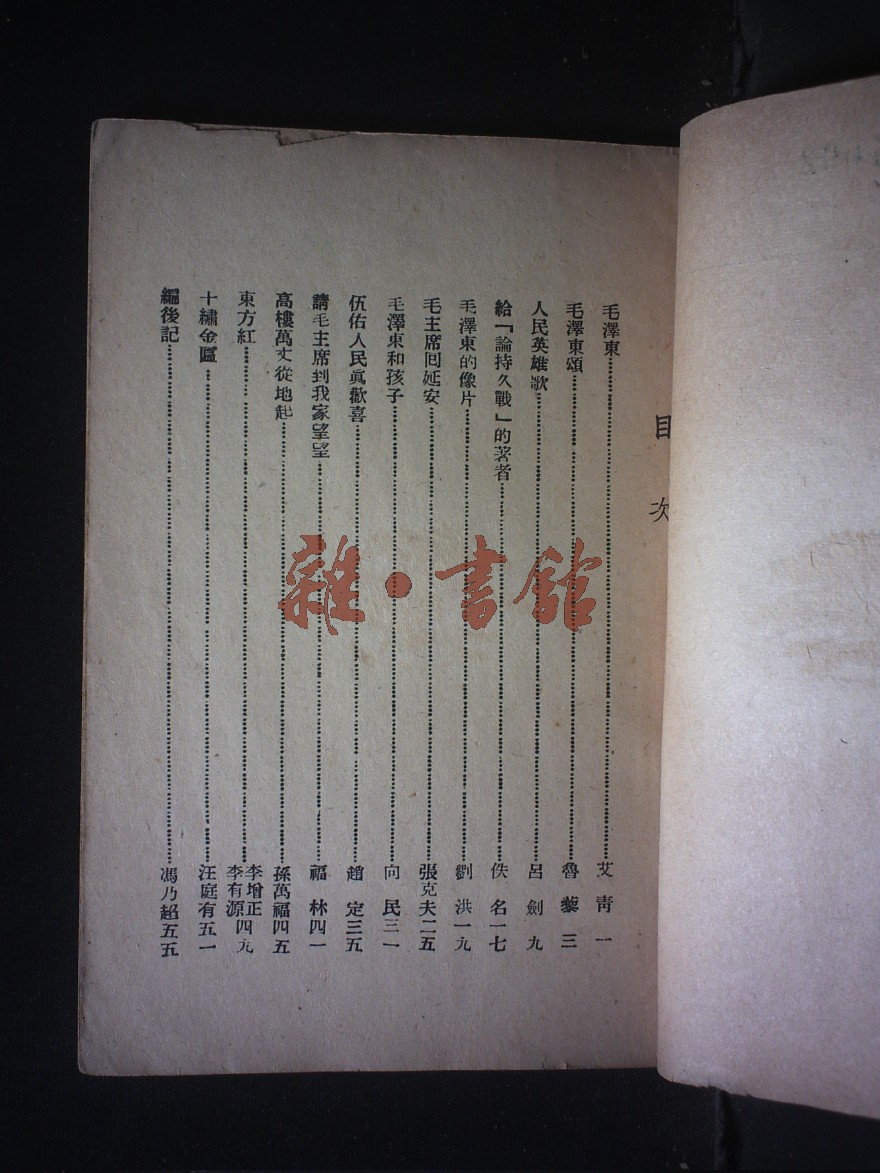 目次
毛澤東 艾青 一
毛澤東頌 魯藜 三
人民英雄歌 呂劍 九
給「論持久戰」的著者 佚名 一七
毛澤東的像片 劉洪 一九
毛主席囘延安 張克夫 二五
毛澤東和孩子 向民 三一
伍佑人民眞歡喜 趙定 三五
請毛主席到我家望望 福林 四一
高樓萬丈從地起 孫萬福 四五
東方紅 李增正 李有源 四九
十繡金匾 汪庭有 五一
編後記 馮乃超 五五
雜·書館